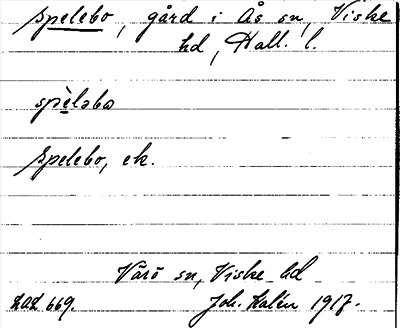 Spelebo, gård i Ås sn, Viske
hd, Hall. l.
spèləbo
Spelebo, ek.
Värö sn, Viske hd
kad 669.
Joh. Kalén 1917.